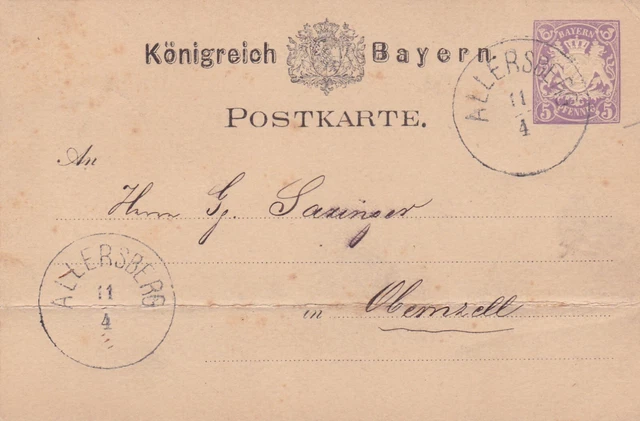 Königreich Bayern.
BAYERN
5 5
PFENNIG
ALLERSBERG
11
4
POSTKARTE.
An
Herrn Gg. Saxinger
ALLERSBERG
11
4
in Obernzell